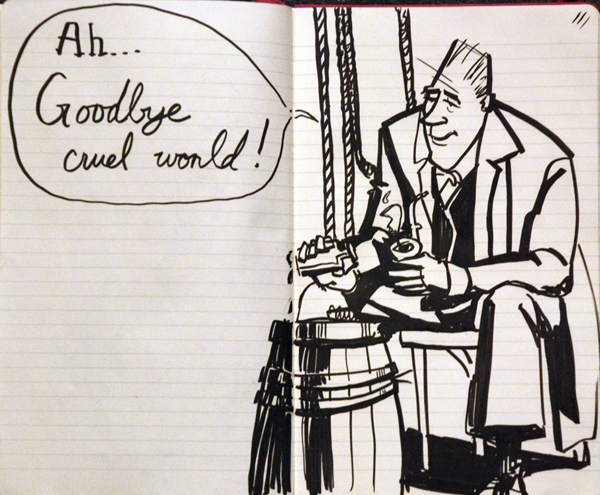 Ah...
Goodbye
cruel world!